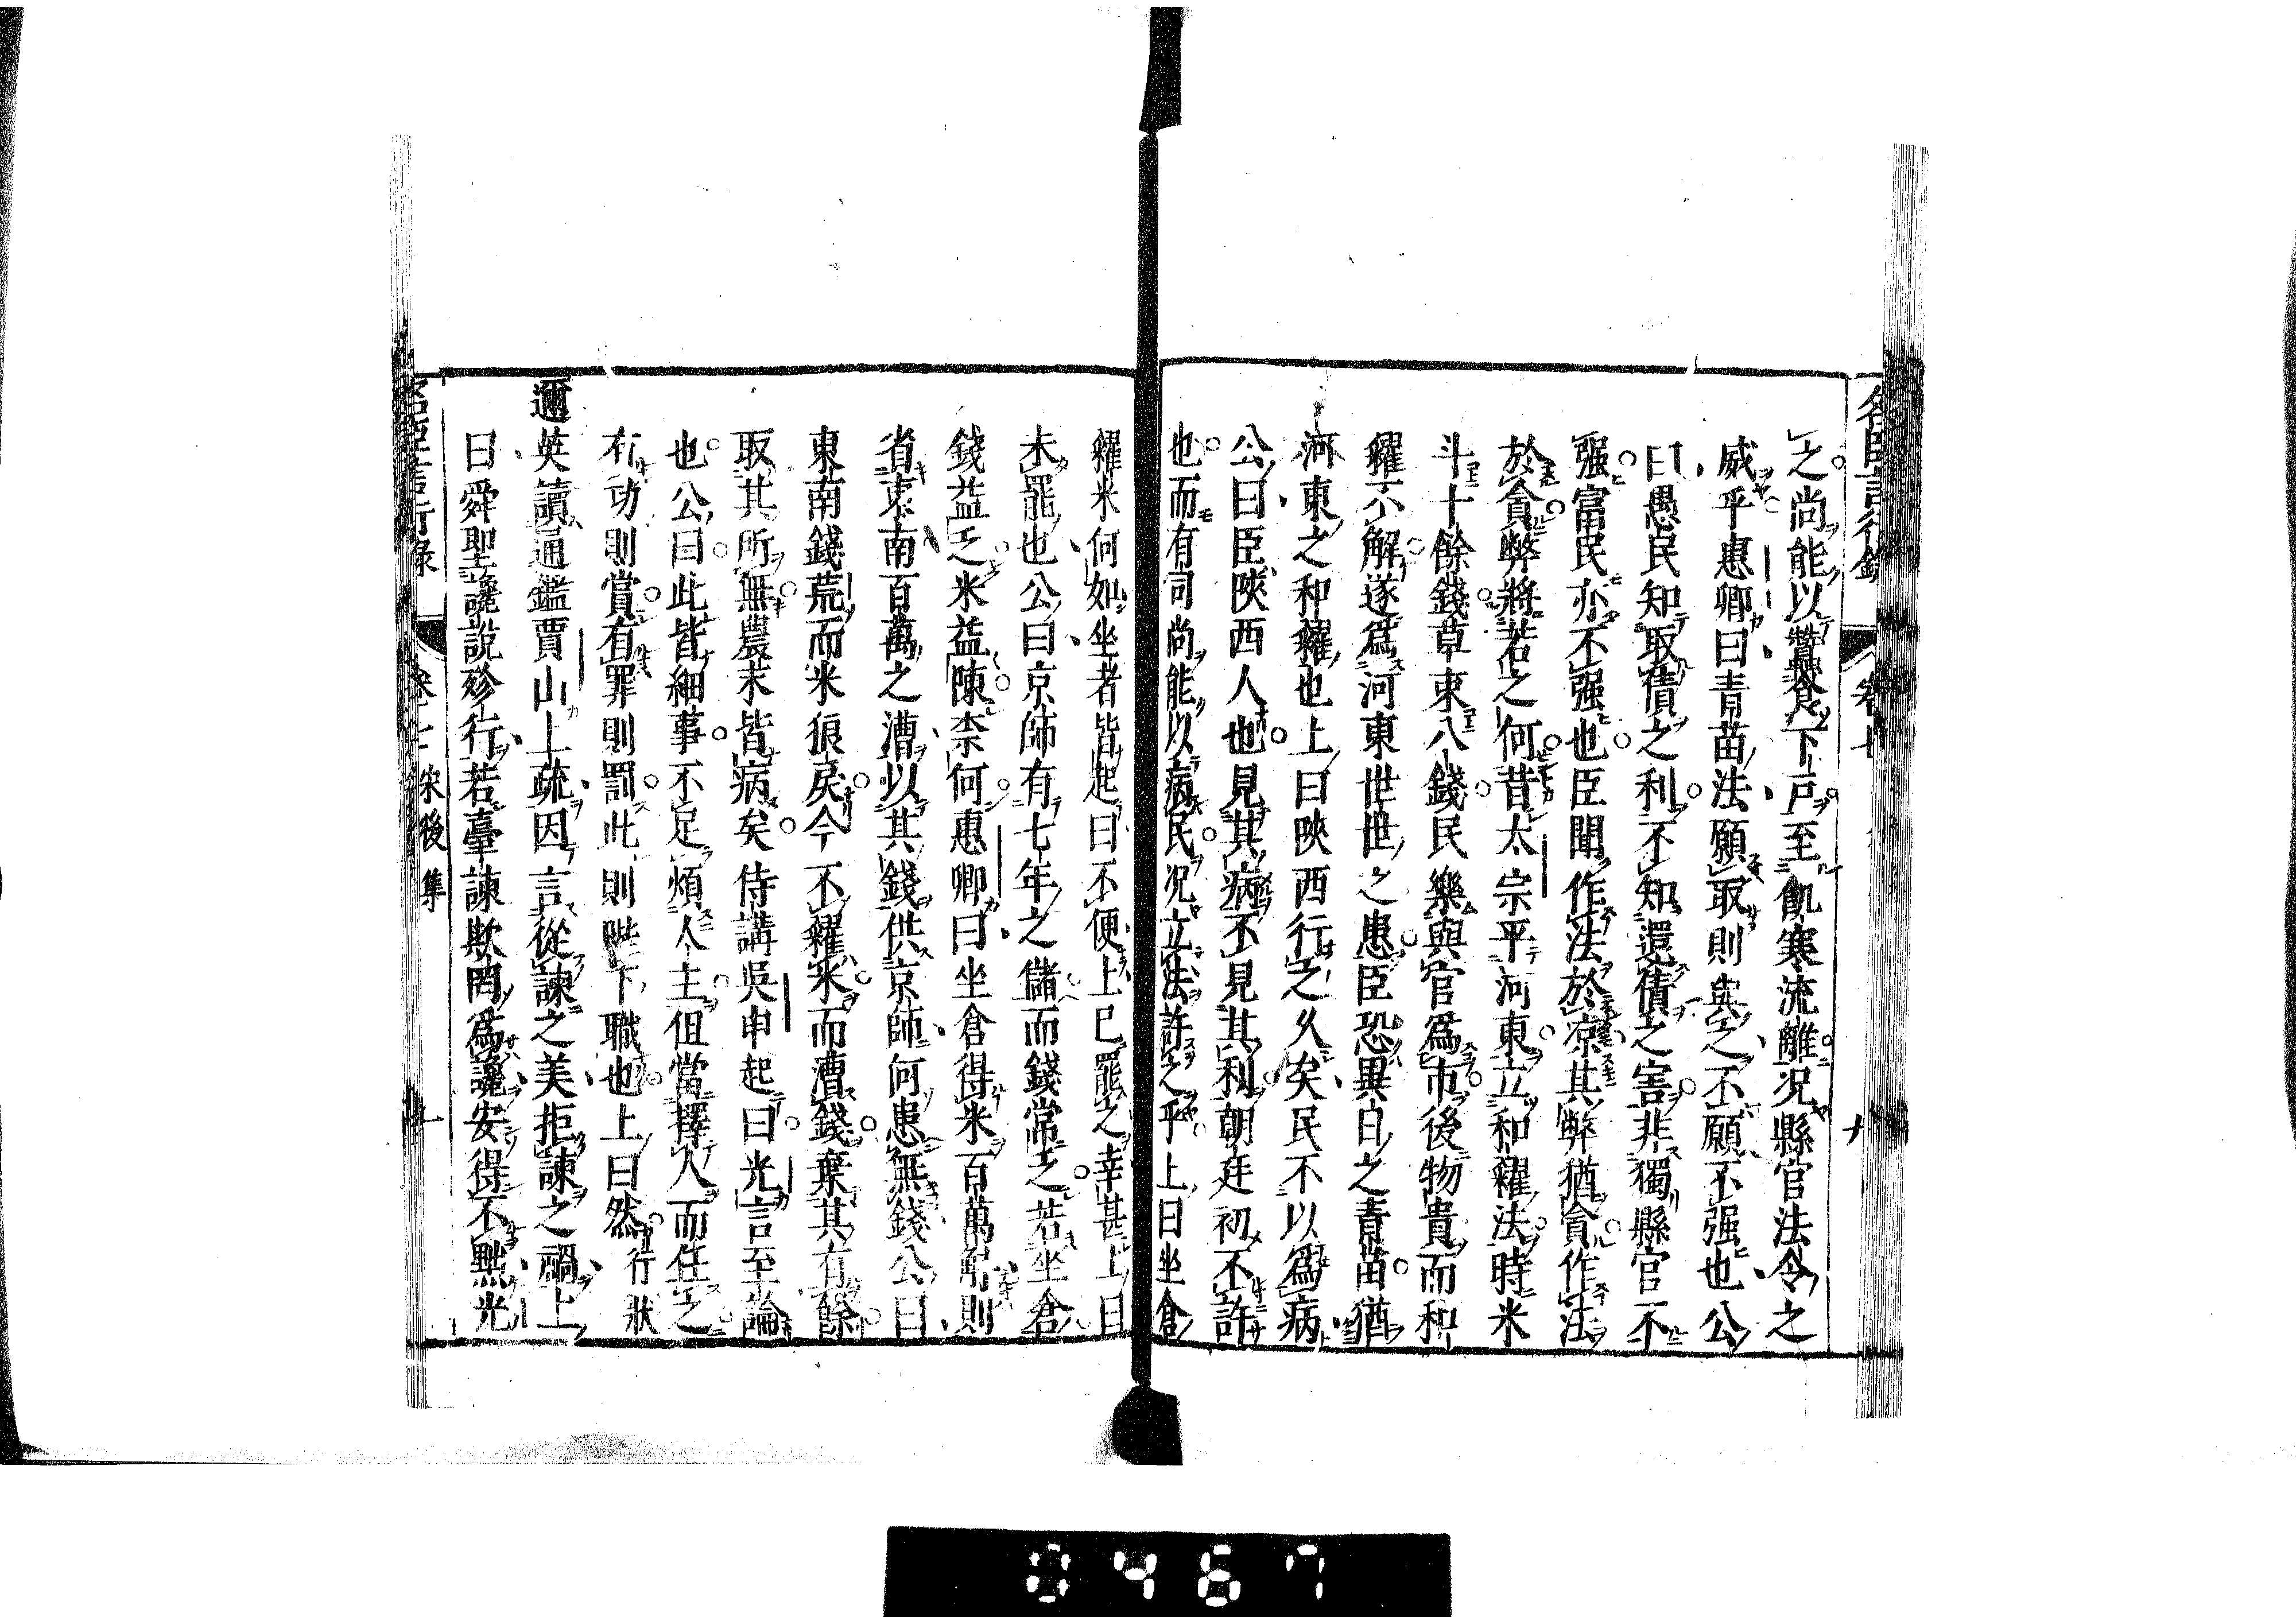 名臣言行錄 卷七 十
之尚能以蠶食下戶至飢寒流離况縣官法令之
威乎惠卿曰青苗法願取則與之不願不强也公
曰愚民知取債之利不知還債之害非獨縣官不
强富民亦不强也臣聞作法於凉其弊猶貪作法
於貪弊將若之何昔太宗平河東立和糴法時米
斗十餘錢草束八錢民樂與官爲市後物貴而和
糴不解遂爲河東世世之患臣恐異日之青苗猶
河東之和糴也上曰陝西行之久矣民不以爲病
公曰臣陝西人也見其病不見其利朝廷初不許
也而有司尚能以病民况立法許之乎上曰坐倉
糴米何如坐者皆起曰不便上已罷之幸甚上曰
未罷也公曰京師有七年之儲而錢常乏若坐倉
錢益乏米益陳柰何惠卿曰坐倉得米百萬斛則
省東南百萬之漕以其錢供京師何患無錢公曰
東南錢荒而米狼戾今不糴米而漕錢棄其有餘
取其所無農末皆病矣侍講吳申起曰光言至論
也公曰此皆細事不足煩人主但當擇人而任之
有功則賞有罪則罰此則陛下職也上曰然行狀
邇英讀通鑑賈山上疏因言從諫之美拒諫之禍上
曰舜聖讒說殄行若臺諫欺罔爲讒安得不黜光
言行錄 卷七 宋後集
0467